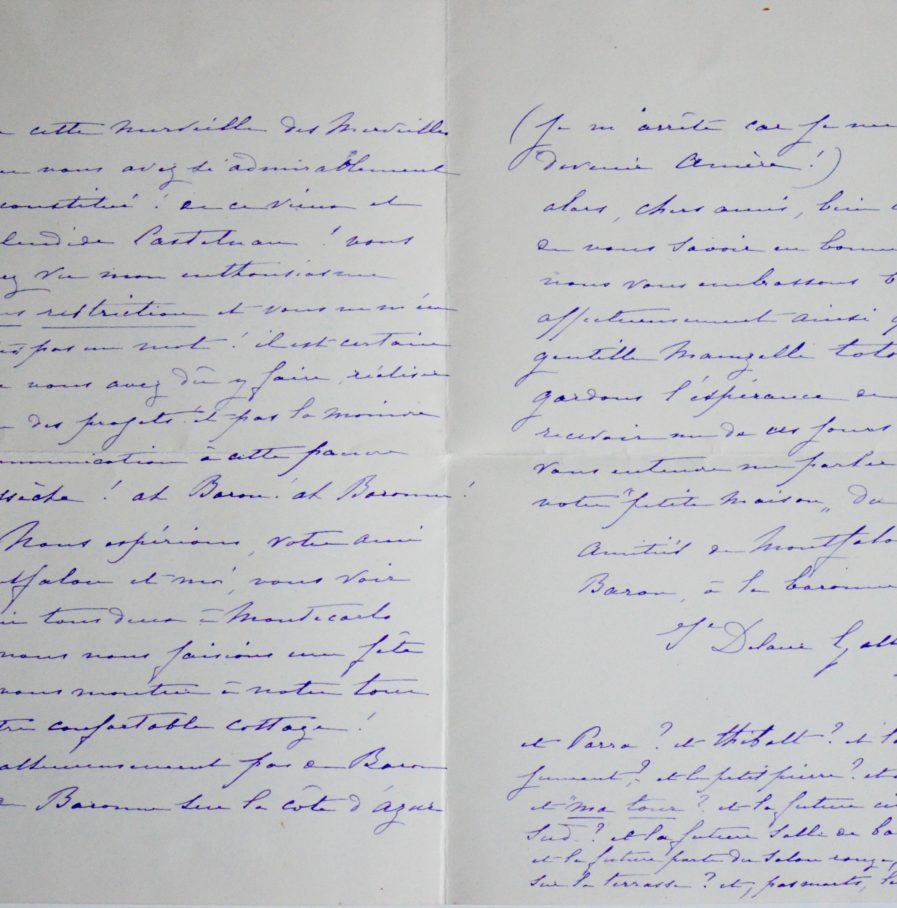 cette merveille des merveilles
vous avez si admirablement
constitué ! ce vieux et
splendide Castelnau ! vous
vu mon enthousiasme
restriction et vous
pas un mot ! il est certain
vous avez dû y faire, réaliser
des projets ! et pas la moindre
communication à cette pauvre
! ah Baron ! ah Baronne !
Nous espérions, votre ami
et moi, vous voir
tous deux à Montecarlo
nous nous faisions une fête
vous montrer à notre tour
confortable cottage !
pas de Baron
Baronne sur la côte d'azur
(Je m'arrête car je
devenir amère !)
alors, chers amis, bien
de vous savoir en bonne
nous vous embrassons
affectueusement ainsi
gentille Mamzelle
gardons l'espérance de
recevoir un de ces jours
vous entendre me parler
votre "petite maison" du
Amitiés de
Baron, à la baronne
et Parra ? et thibalt ? et
et le petit pierre ? et
et "ma tour ? et la future
sud ? et la future salle de
et la future porte du salon rouge,
sur la terrasse ? et,